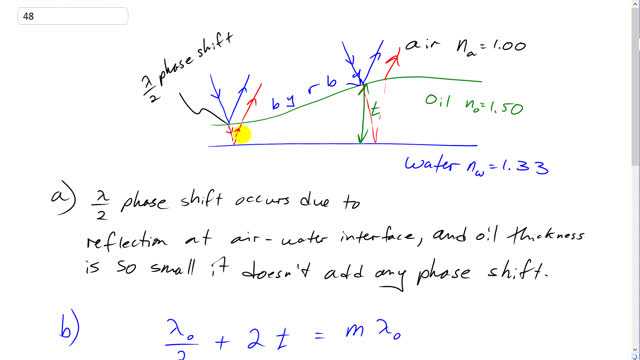 48
λ/2 phase shift
air nₐ = 1.00
b y r b
t₁
Oil n₀ = 1.50
water n_w = 1.33
a) λ/2 phase shift occurs due to
reflection at air-water interface, and oil thickness
is so small it doesn't add any phase shift.
b) λ₀/2 + 2t = mλ₀